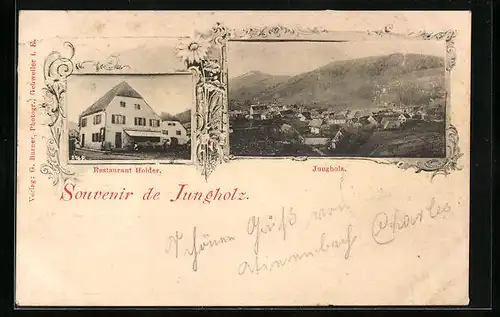 Verlag: G. Burner, Photogr., Gebweiler i. E.
Restaurant Holder.
Jungholz.
Souvenir de Jungholz.
Schönen Gruß von
Charles